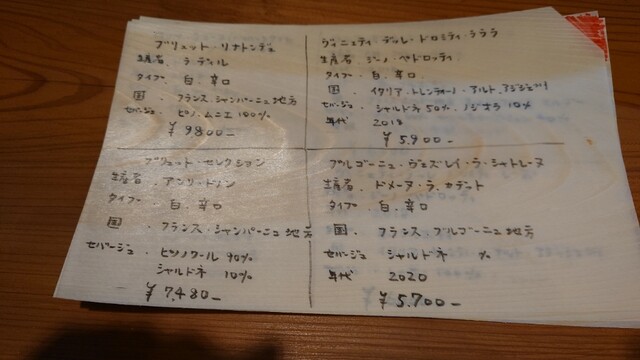 ブリュット・リナトンデュ
生産者. ラ・デイル
タイプ. 白. 辛口
国. フランス・シャンパーニュ地方
セパージュ. ピノ・ムニエ 100%
¥9800-
ヴィニェティ・デッレ・ドロミティ・ラララ
生産者. ジーノ・ペドロッティ
タイプ. 白. 辛口
国. イタリア.トレンティーノ・アルト.アジジェ
セパージュ. シャルドネ 50%. ノジオラ 10%
年代. 2018
¥5.900-
ブリュット・セレクション
生産者. アンリ・ドソン
タイプ. 白. 辛口
国. フランス・シャンパーニュ地方
セパージュ. ピノノワール 90%
シャルドネ 10%
¥7.480-
ブルゴーニュ・ヴェズレイ・ラ・シャトレーヌ
生産者. ドメーヌ・ラ.カデット
タイプ. 白. 辛口
国. フランス ブルゴーニュ地方
セパージュ シャルドネ %
年代 2020
¥5.700-